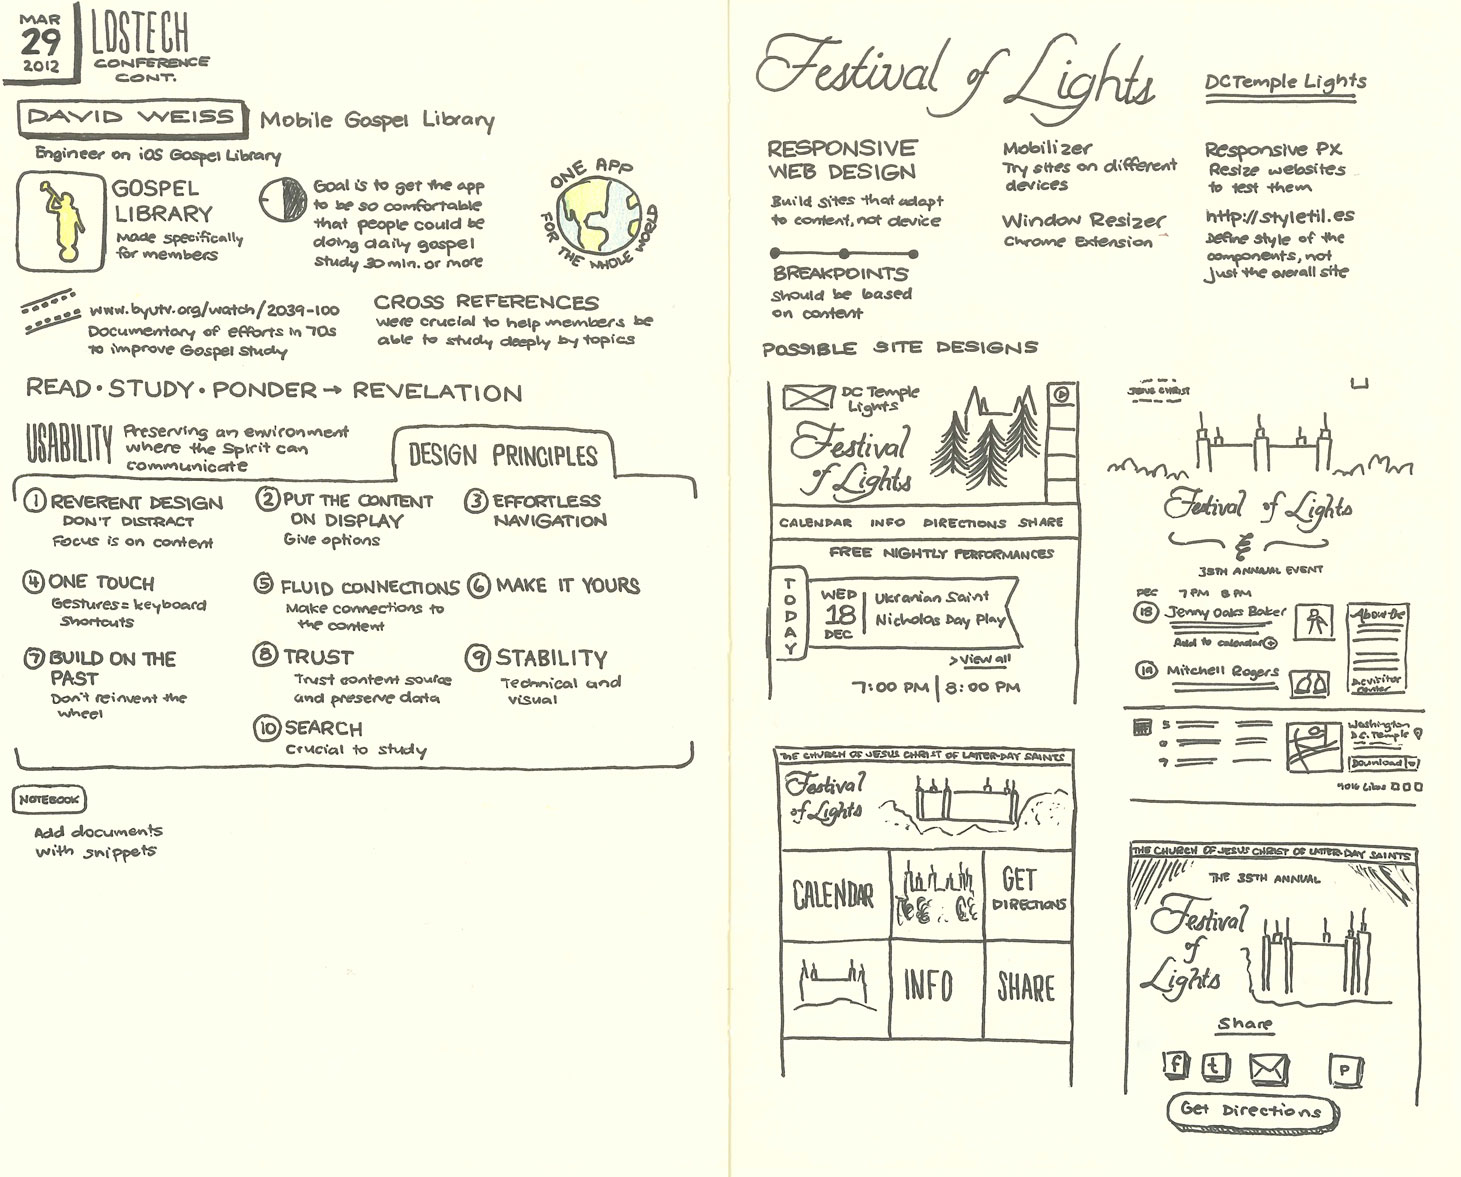 MAR
29
2012
LDSTECH
CONFERENCE
CONT.
DAVID WEISS
Mobile Gospel Library
Engineer on iOS Gospel Library
GOSPEL
LIBRARY
Made specifically
for members
Goal is to get the app
to be so comfortable
that people could be
doing daily gospel
study 30 min. or more
ONE APP
FOR THE WHOLE WORLD
www.byutv.org/watch/2039-100
Documentary of efforts in 70s
to improve Gospel Study
CROSS REFERENCES
were crucial to help members be
able to study deeply by topics
READ • STUDY • PONDER → REVELATION
USABILITY
Preserving an environment
where the Spirit can
communicate
DESIGN PRINCIPLES
1 REVERENT DESIGN
DON'T DISTRACT
Focus is on content
2 PUT THE CONTENT
ON DISPLAY
Give options
3 EFFORTLESS
NAVIGATION
4 ONE TOUCH
Gestures = keyboard
Shortcuts
5 FLUID CONNECTIONS
Make connections to
the content
6 MAKE IT YOURS
7 BUILD ON THE
PAST
Don't reinvent the
wheel
8 TRUST
Trust content source
and preserve data
9 STABILITY
Technical and
visual
10 SEARCH
Crucial to study
NOTEBOOK
Add documents
with snippets
Festival of Lights
DC Temple Lights
RESPONSIVE
WEB DESIGN
Build sites that adapt
to content, not device
BREAKPOINTS
should be based
on content
Mobilizer
Try sites on different
devices
Window Resizer
Chrome Extension
Responsive PX
Resize websites
to test them
http://styletil.es
Define style of the
components, not
just the overall site
POSSIBLE SITE DESIGNS
DC Temple
Lights
Festival
of Lights
CALENDAR INFO DIRECTIONS SHARE
FREE NIGHTLY PERFORMANCES
TODAY
WED
18
DEC
Ukranian Saint
Nicholas Day Play
> View all
7:00 PM | 8:00 PM
JESUS CHRIST
Festival of Lights
35TH ANNUAL EVENT
DEC 7 PM 8 PM
18 Jenny Oaks Baker
Add to calendar +
19 Mitchell Rogers
About the
DC Visitor
Center
Washington
D.C. Temple
Download
Likes
THE CHURCH OF JESUS CHRIST OF LATTER-DAY SAINTS
Festival
of Lights
CALENDAR
GET
DIRECTIONS
INFO
SHARE
THE CHURCH OF JESUS CHRIST OF LATTER-DAY SAINTS
THE 35TH ANNUAL
Festival
of
Lights
Share
f t P
Get Directions